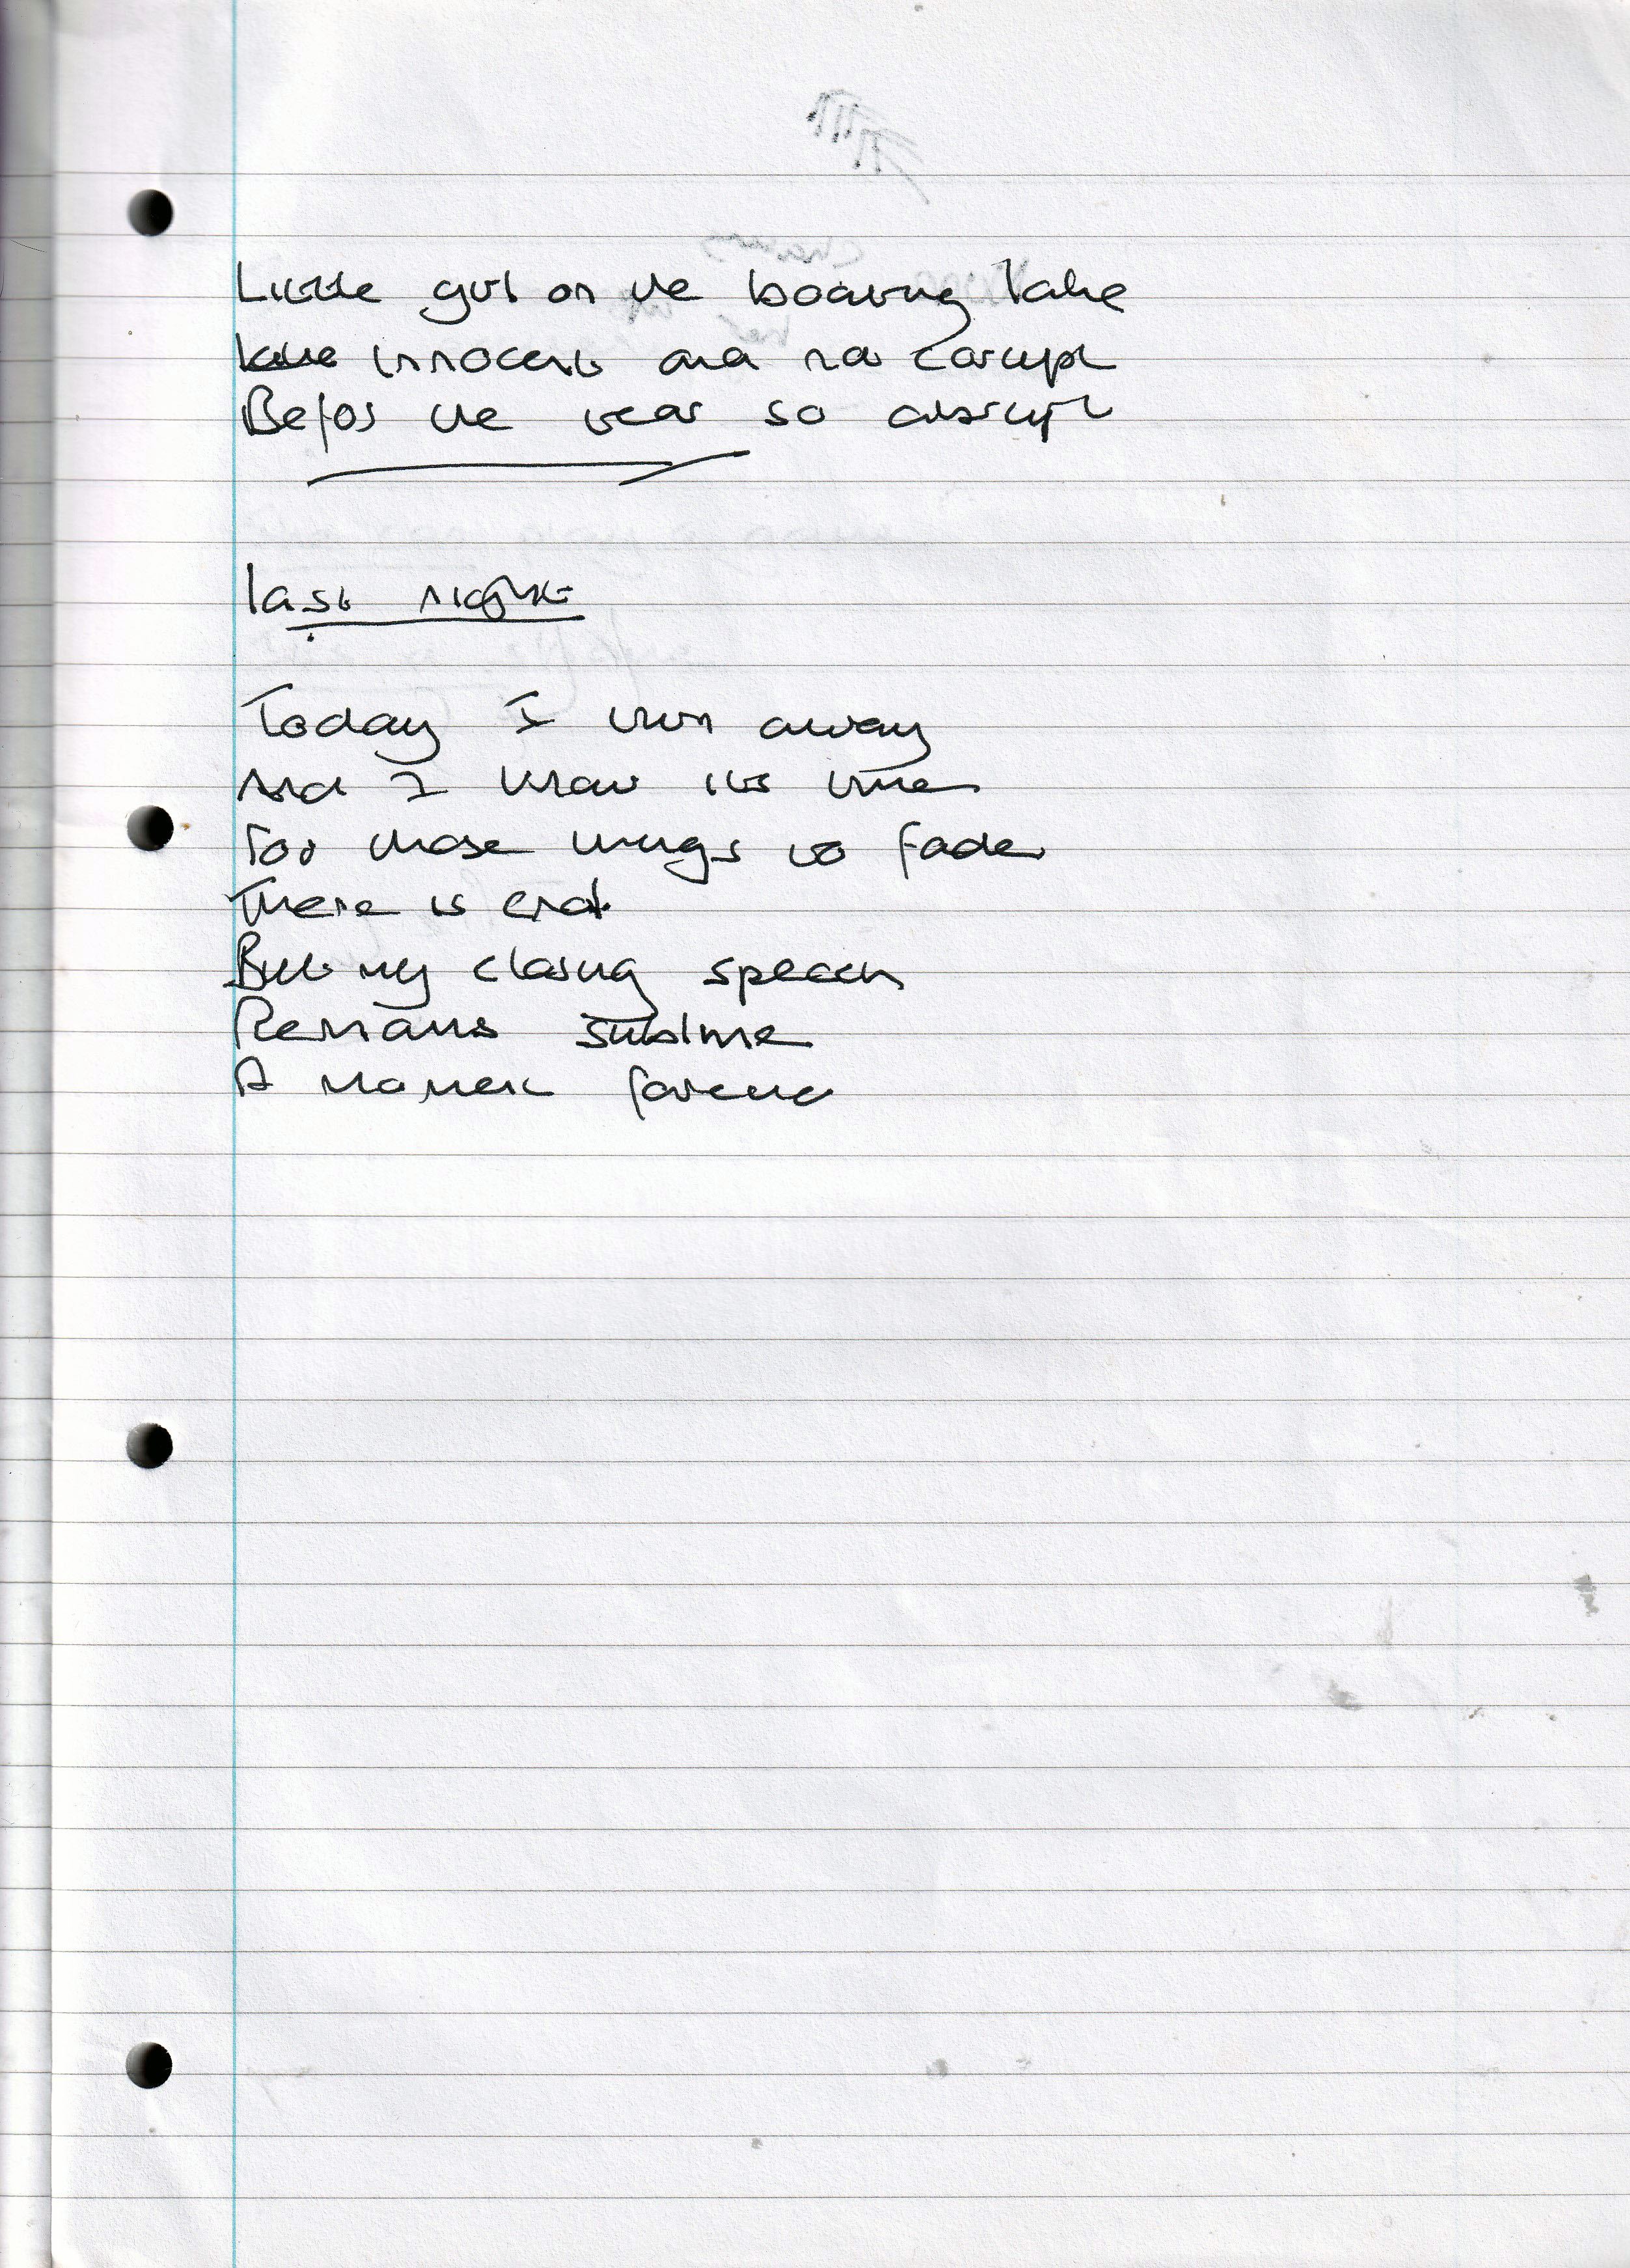 Little girl on the boating lake
innocent and not corrupt
Befor the tear so abrupt
last night
Today I turn away
And I know its time
For those things to fade
There is end
But my closing speech
Remains sublime
A moment forever